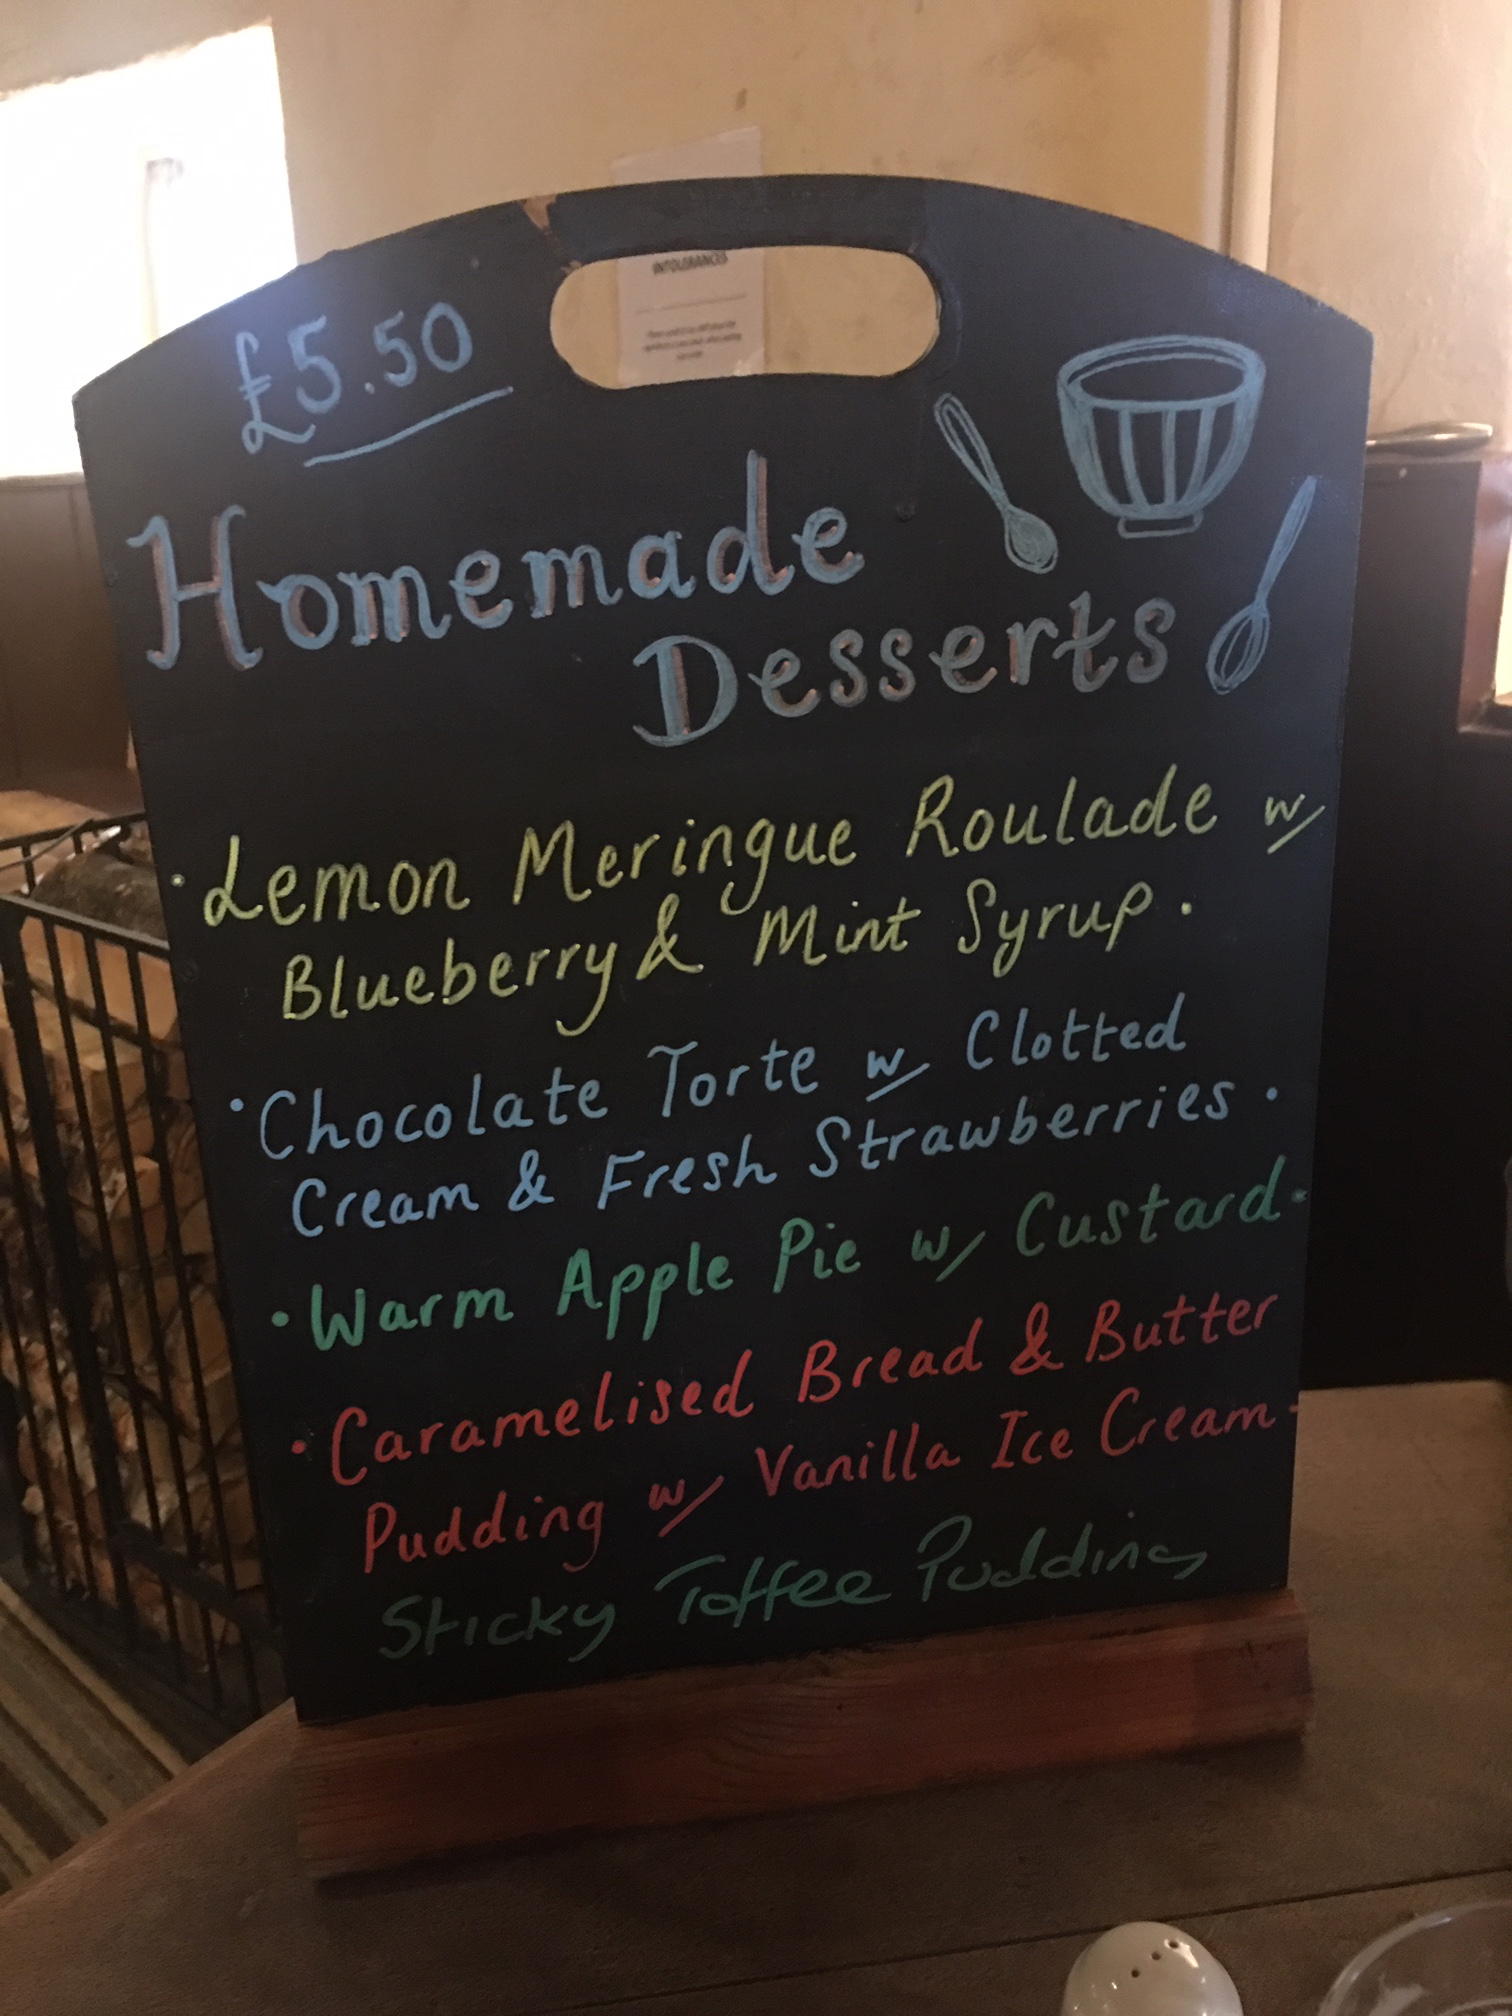 INTOLERANCES
£5.50
Homemade
Desserts
·Lemon Meringue Roulade w/
Blueberry & Mint Syrup.
·Chocolate Torte w/ Clotted
Cream & Fresh Strawberries.
·Warm Apple Pie w/ Custard.
·Caramelised Bread & Butter
Pudding w/ Vanilla Ice Cream.
Sticky Toffee Pudding